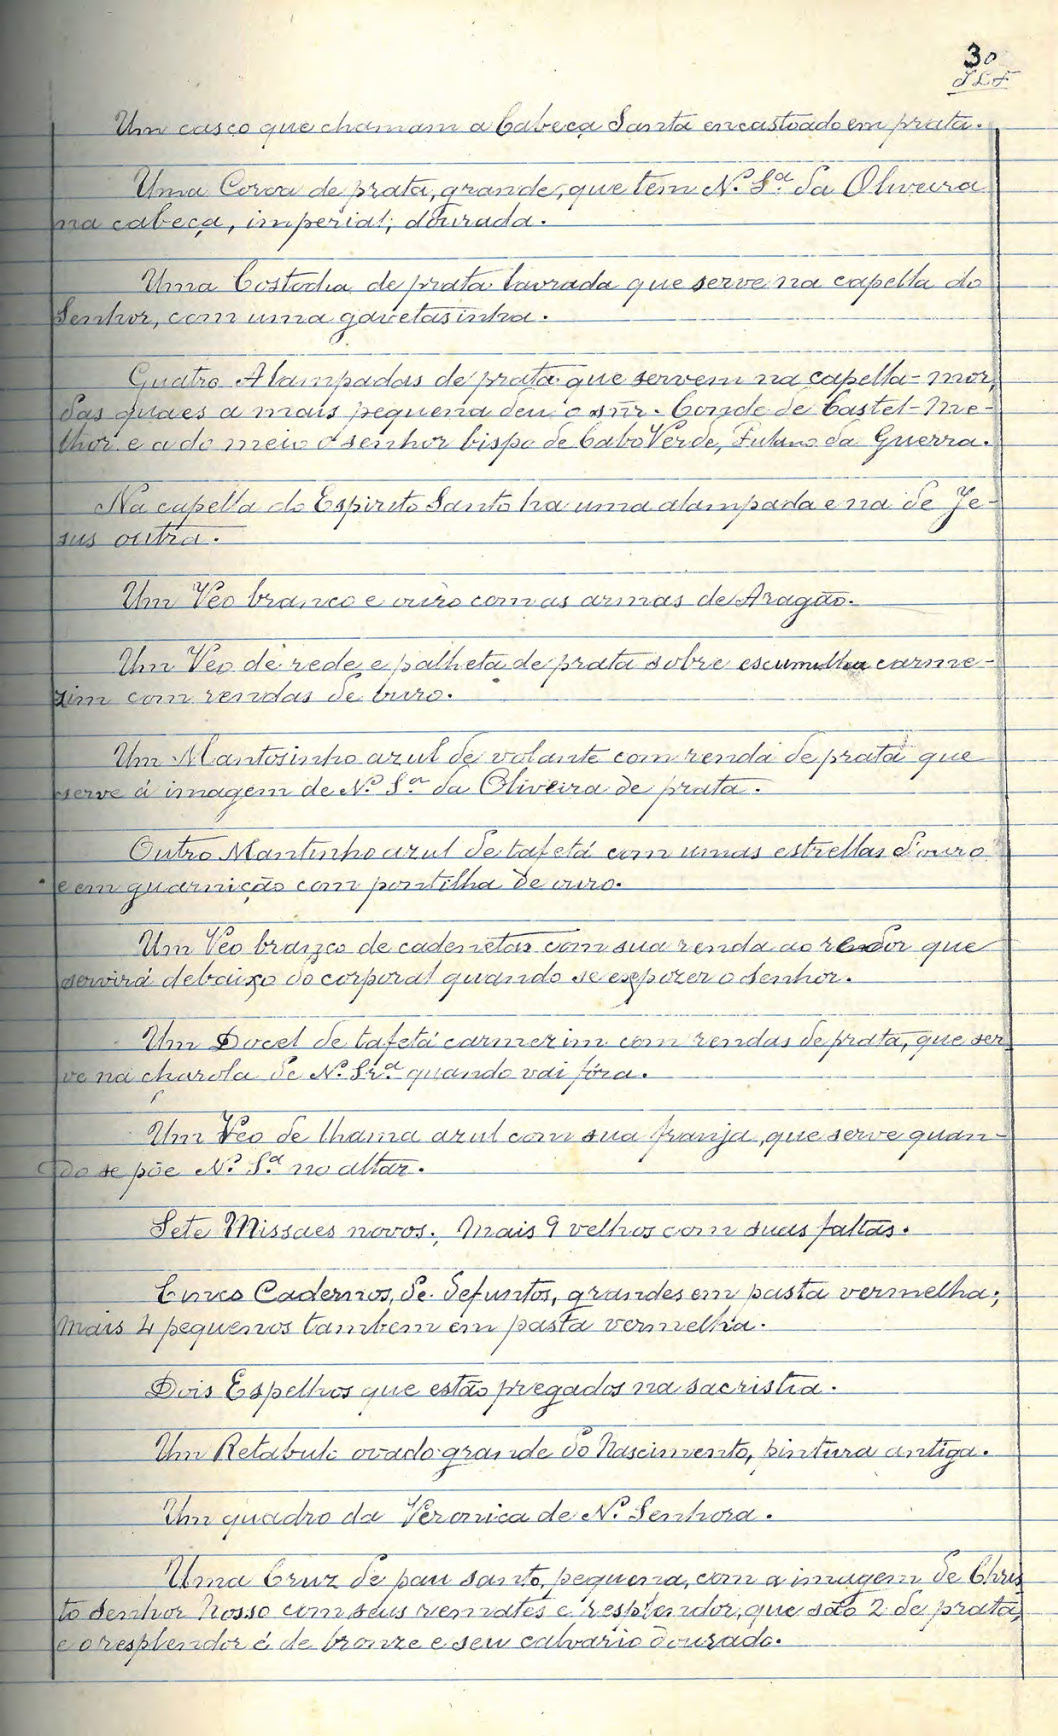 30
Um casco que chamam a Cabeça Santa encastoado em prata.
Uma Coroa de prata, grande, que tem Nª Sª da Oliveira
na cabeça, imperial, dourada.
Uma Costodia de prata lavrada que serve na capella do
Senhor, com uma gavetasinha.
Quatro Alampadas de prata que servem na capella-mór,
das quaes a mais pequena deu o snr. Conde de Castel-Me-
lhor e a do meio o senhor bispo de Cabo Verde, Fulano da Guerra.
Na capella do Espirito Santo ha uma alampada e na de Je-
sus outra.
Um Veo branco e ouro com as armas de Aragão.
Um Veo de rede e palheta de prata sobre escumilha carme-
zim com rendas de ouro.
Um Mantosinho azul de volante com renda de prata que
serve á imagem de Nª Sª da Oliveira de prata.
Outro Mantinho azul de tafetá com umas estrellas d'ouro
e em guarnição com pontilha de ouro.
Um Veo branco de cadenetas com sua renda ao redor que
servirá debaixo do corporal quando se expozer o Senhor.
Um Docel de tafetá carmezim com rendas de prata, que ser
ve na charola de Nª Srª quando vai fóra.
Um Veo de lhama azul com sua franja, que serve quan-
do se põe Nª Sª no altar.
Sete Missaes novos. Mais 9 velhos com suas faltas.
Cinco Cadernos, de defuntos, grandes em pasta vermelha;
mais 4 pequenos tambem em pasta vermelha.
Dois Espelhos que estão pregados na sacristia.
Um Retabulo ovado grande do Nascimento, pintura antiga.
Um quadro da Veronica de Nª Senhora.
Uma Cruz de pau santo, pequena, com a imagem de Chris
to Senhor Nosso com seus remates e resplandor, que são 2 de prata,
e o resplendor é de bronze e seu calvario dourado.